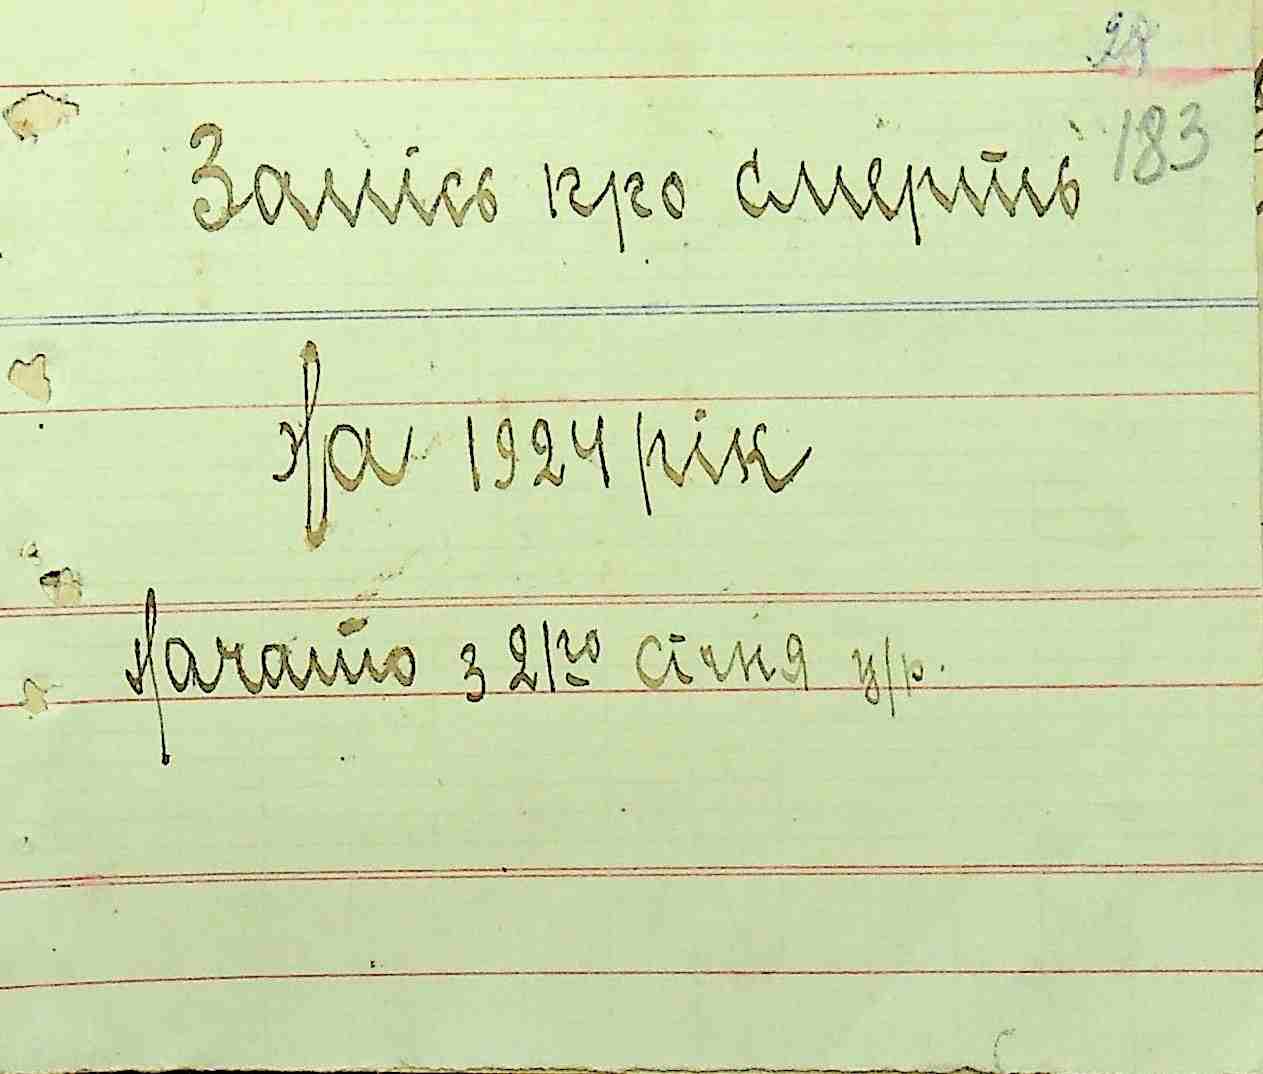 183
Запісь про смерть
На 1924 рік
Начато з 2го січня ц/р.